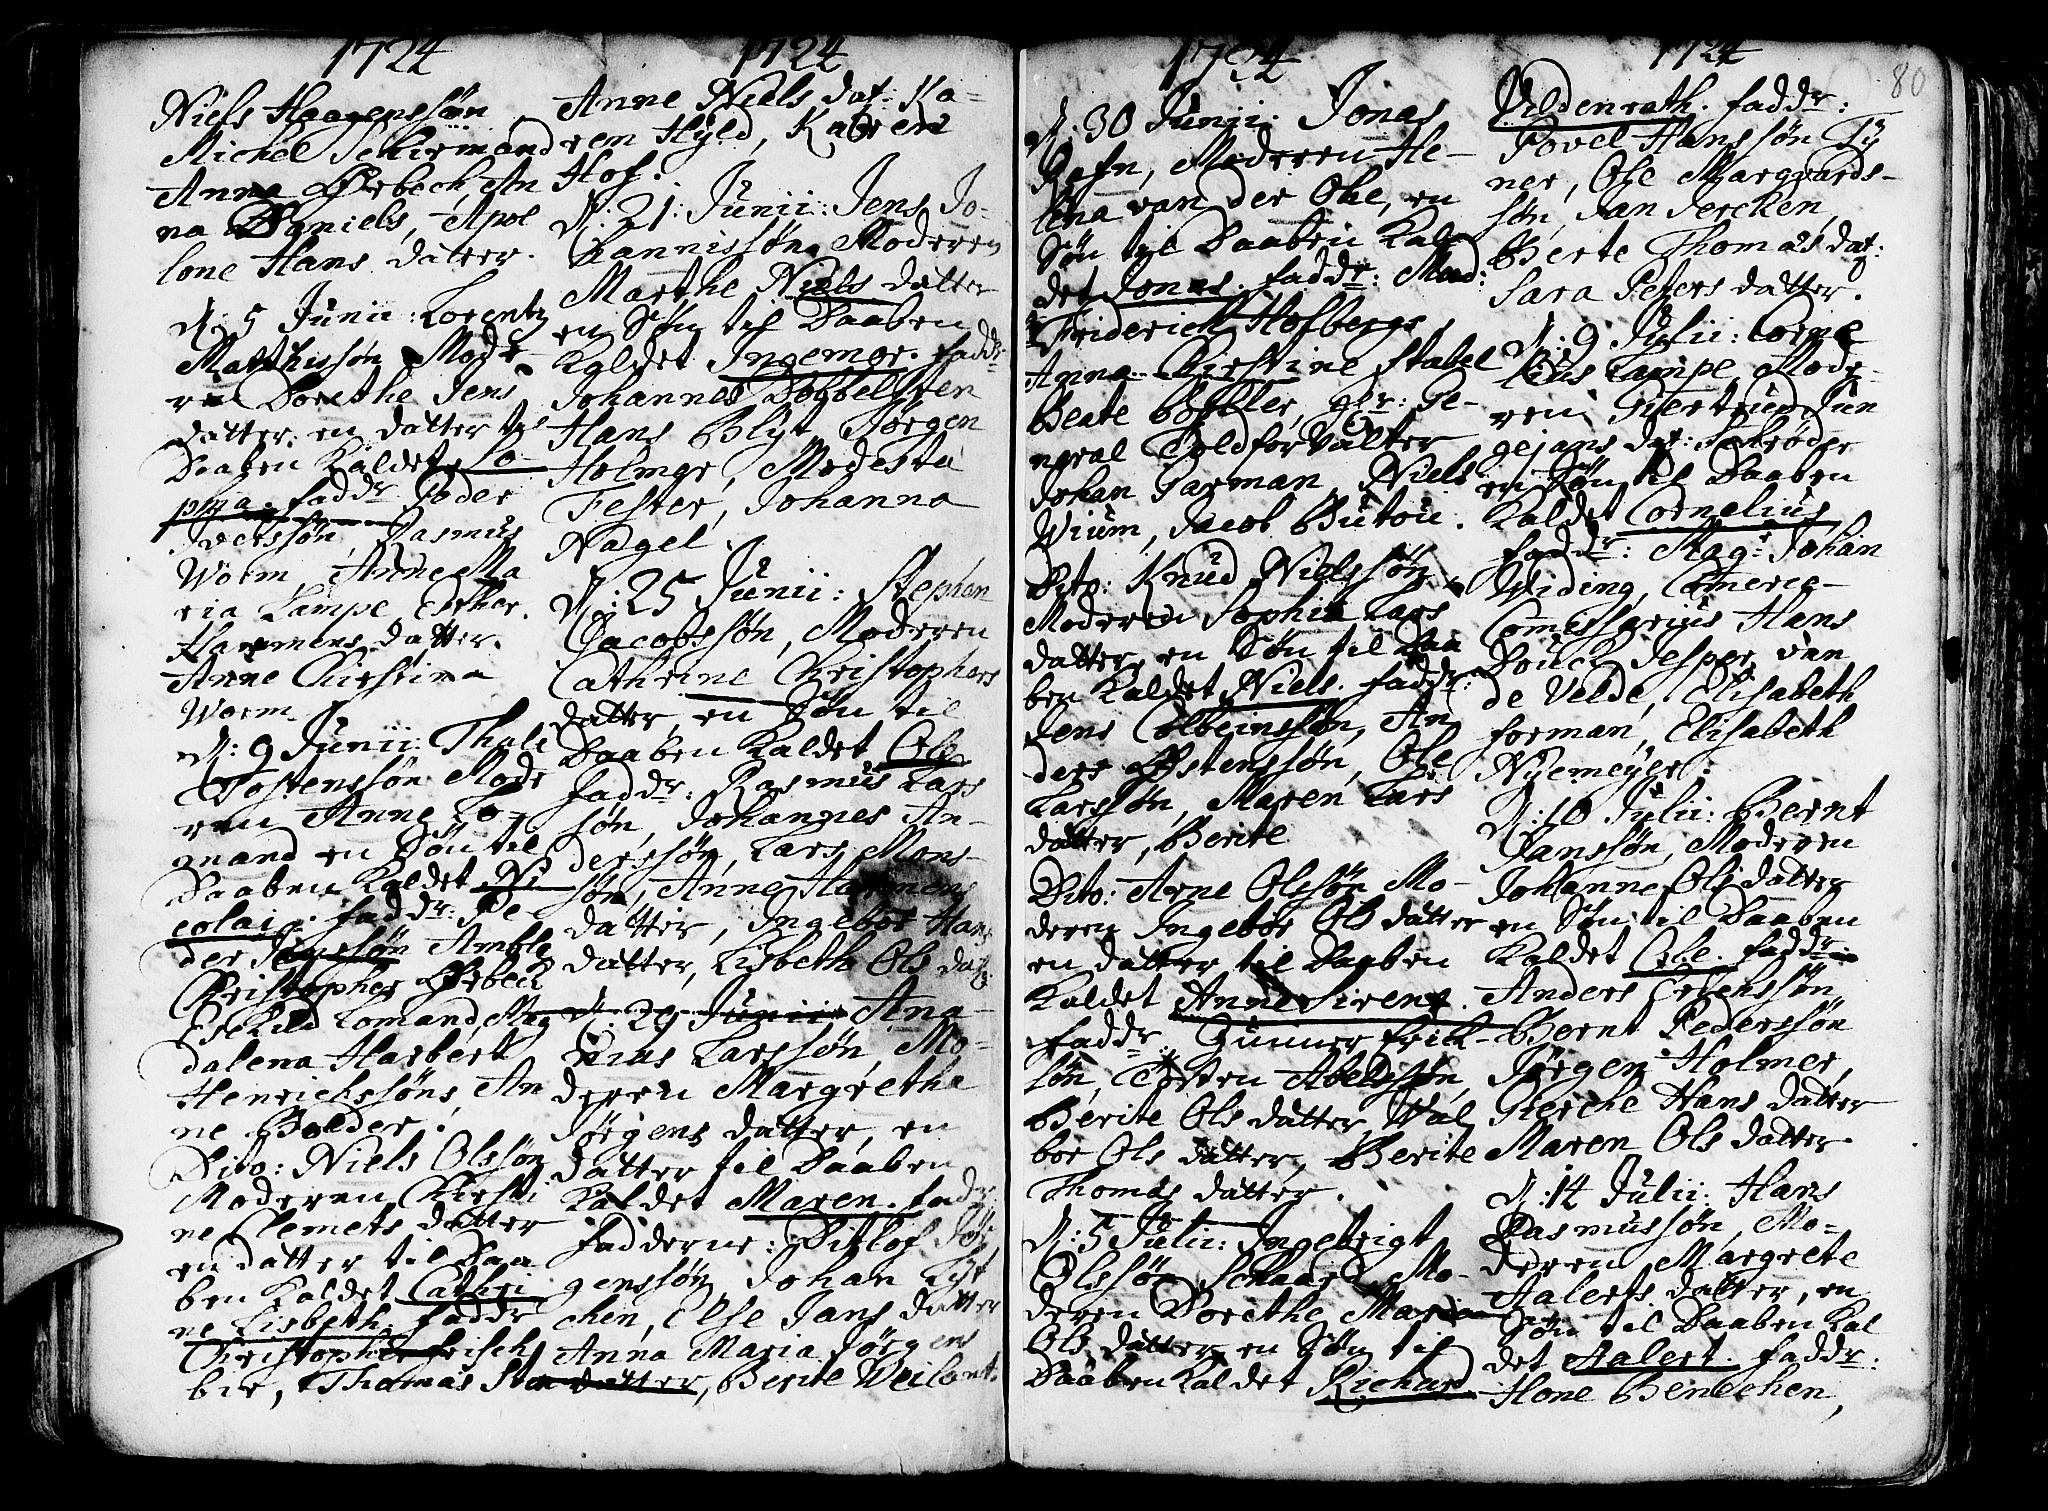 1724
Niels Haagenssøn
Michel Schürmand
Anna Ørbeck, An
na Daniels, Apol
lone Hans datter.
D: 5 Junii: Lorentz
Matthissøn Mode-
ren Dorethe Jens
datter. en datter til
Daaben kaldet So-
phia. faddr Peder
Iverssøn, Rasmus
Worm, Anne Ma
ria Lampe, Esther
Harmens datter.
Anne Christina
Worm.
D: 9 Junii: Thole
Tostenssøn Mode
ren Anne Lo-
gnand en Søn til
Daaben kaldet Ni
colai. faddr: Pe-
der Jenssøn Amble
Christopher Ørbeck
Eschild Lomand, Mag
dalena Harbert
Henrichssøns, An
ne Bolder.
Dito: Niels Olssøn
Moderen Kirsti
ne Clemets datter
en datter til Daa
ben kaldet Cathri
ne Lisbeth. faddr
Christopher Frisch
bir, Thomas
1724
Anne Niels dat: Ka-
ren Hyld, Karen
Hof.
D: 21: Junii: Jens Jo-
hannissøn, Moderen
Marthe Niels datter
en Søn til Daaben
kaldet Ingemor. faddr
Johannes Dobbelsten
Hans Blyt, Jørgen
Holmer, Modesta
Fester, Johanna
Nagel.
D: 25 Junii: Stephen
Jacobssøn, Moderen
Cathrine Christophers
datter, en Søn til
Daaben kaldet Ole
faddr: Rasmus Lars
søn, Johannes An-
derssøn, Lars Mons-
søn, Anne Harmens
datter, Ingebor Hans
datter, Lisbeth Ols dat:
D: 29 Junii: Ana-
nias Larssøn, Mo-
deren Margretha
Jørgens datter, en
datter til Daaben
kaldet Maren. fadr
fadderne: Ditlof Jør
genssøn, Johan Kyt
chen, Else Jans datter
Anna Maria Jørgens
datter, Berite Weilant.
1724
D: 30 Junii: Jonas
Rafn, Moderen He-
lena van der Ohe, en
Søn til Daaben kal
det Jonas. faddr: Mad:
Friderich Hofbergs,
Anna Kirstine Stabel
Beate Bøgler, hr: Ge-
neral Toldforvalter
Johan Garman, Niels
Wium, Jacob Butou.
Dito: Knud Nielssøn,
Moderen Sophia Lars
datter, en Søn til Daa
ben kaldet Niels. faddr:
Jens Colbeinssøn, An
ders Østenssøn, Ole
Larssøn, Maren Lars
datter, Berite
Dito: Arne Olssøn Mo-
deren Ingebor Ols datter
en datter til Daaben
kaldet Anne Sirene.
faddr: Gunner Erick-
søn, Tosten Abelssøn,
Berite Ols datter, Wal
bor Ols datter, Berite
Thomas datter.
D: 5 Julii: Ingebrigt
Olssøn Schaard, Mo-
deren Dorethe Maria
Ols datter en Søn til
Daaben kaldet Richard
1724
80
Vildenrath. faddr:
Povel Hanssøn Ty
ner, Ole Margvards-
søn, Jan Jercken,
Berte Thomas dat:
Sara Peters datter.
D: 9 Julii: Corne
lius Lampe, Mode-
ren Giertrud Jun
gejans dat: Schrøder
en Søn til Daaben
kaldet Cornelius
faddr: Magr Johan
Widing, Comerce-
Comissarius Hans
Bouch, Jesper van
de Velde, Elisabeth
forman, Elisabeth
Nyemeyer.
D: 10 Julii: Bernt
Janssøn, Moderen
Johanne Ols datter
en Søn til Daaben
kaldet Ole. faddr:
Anders Erichssøn
Bernt Pederssøn
Jørgen Holmer,
Gierche Hans datter
Maren Ols datter
D: 14 Julii: Hans
Rasmussøn, Mo-
deren Margrete
Aalerts datter, en
Søn til Daaben kal
det Aalert. faddr:
Hone Benechen,